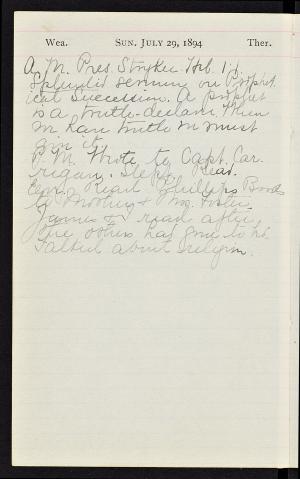 Wea. SUN. JULY 29, 1894 Ther.
A. M. Pres. Stryker Heb. 1:1.
Splendid sermon on Prophet
ical Succession. A prophet
is a truth-declarer. When
we have truth we must
give it.
P. M. Wrote to Capt. Car
rigan. Slept. Read.
Evn'g Read Phillips Brooks
to Mother & Mr. Foster.
James & I read after
the others had gone to bed.
Talked about religion.